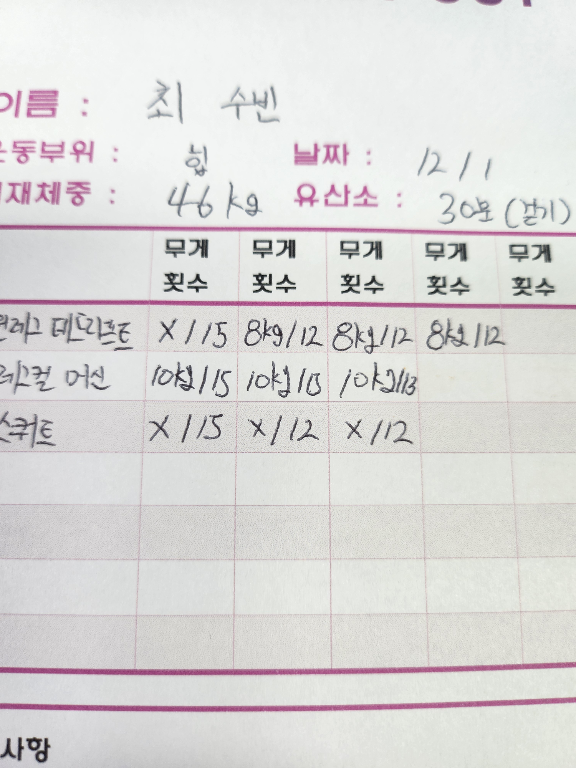 이름 : 최 수빈
운동부위 : 힙 날짜 : 12/1
현재체중 : 46kg 유산소 : 30분 (걷기)
무게 무게 무게 무게 무게
횟수 횟수 횟수 횟수 횟수
원레그 데드리프트 X/15 8kg/12 8kg/12 8kg/12
레그컬 머신 10kg/15 10kg/13 10kg/13
스쿼트 X/15 X/12 X/12
사항